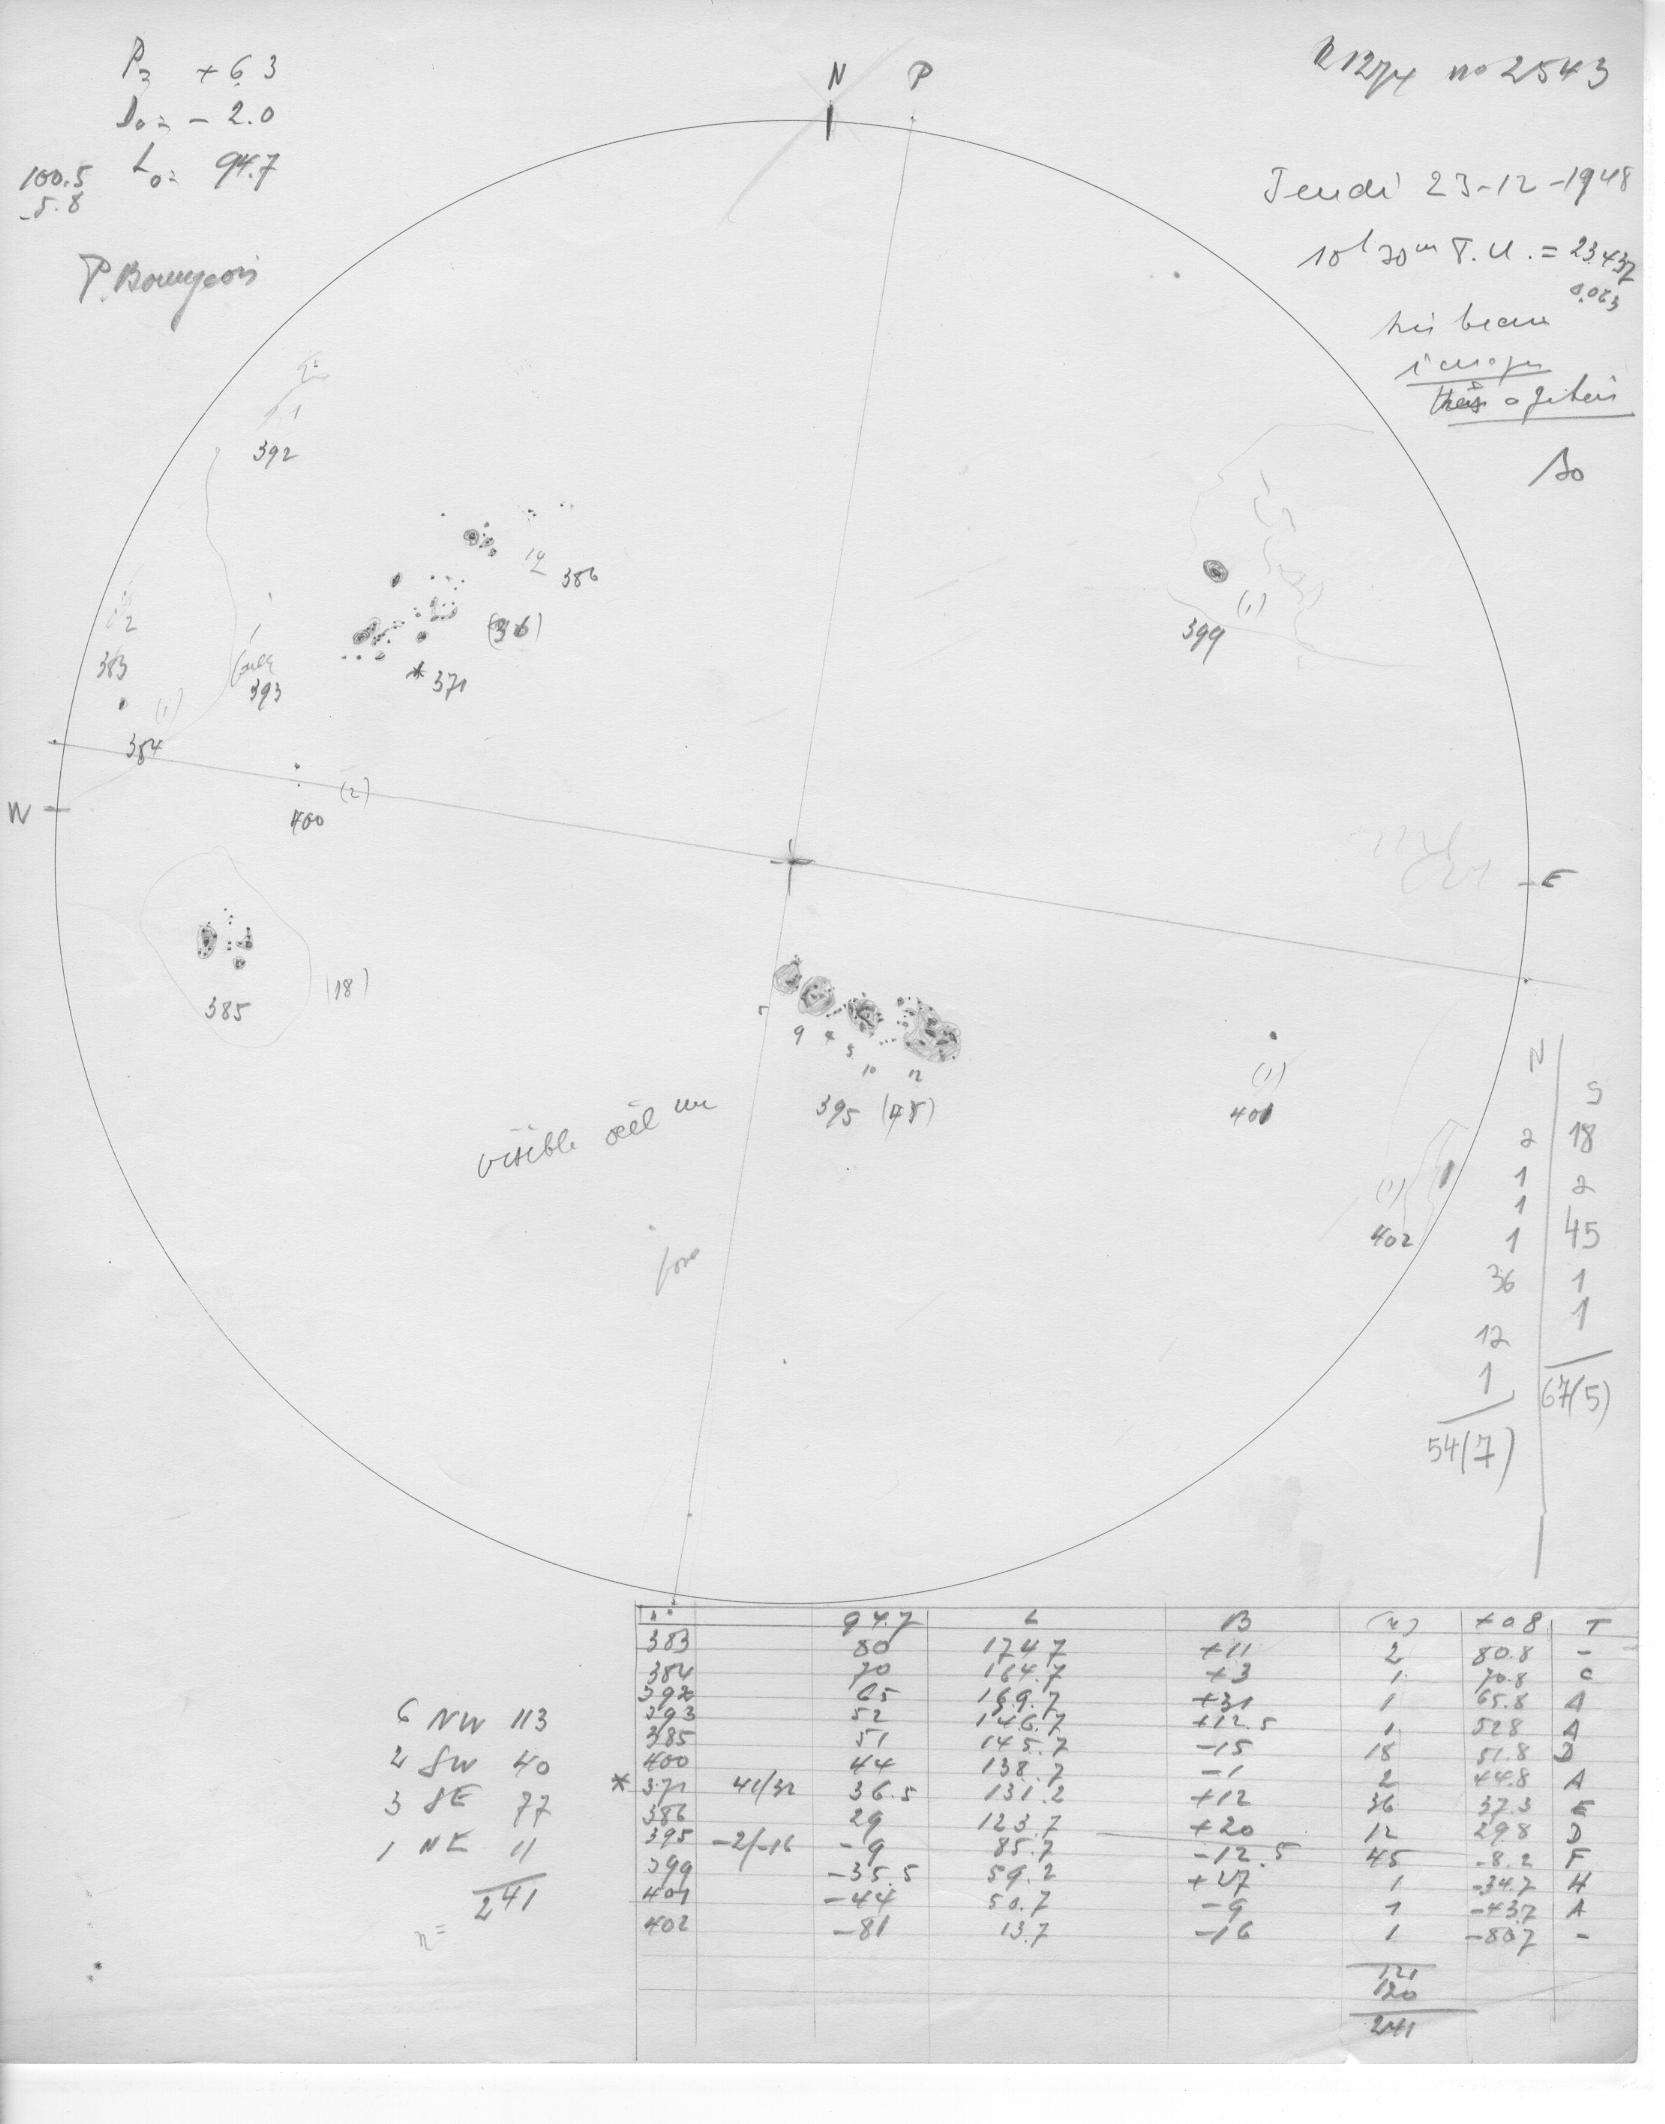 P= +6.3
D₀= -2.0
L₀= 94.7
100.5
-5.8
P. Bourgeois
N P
no 2543
Jeudi 23-12-1948
10h30m T.U. = 23.437
0.063
très beau
images
très agitées
Bo
392
14
386
(36)
* 371
2
383
393
(1)
384
W
(2)
400
(1)
399
E
385
(18)
7
9
4
5
10
12
395 (45)
visible oeil nu
(1)
401
(1)
402
N S
2 18
1 2
1
1 45
36 1
12 1
1
67(5)
54(7)
6 NW 113
2 SW 40
3 SE 77
1 NE 11
241
n=
n° 94.7 L B (n) +0.8 T
383 80 174.7 +11 2 80.8 -
384 70 164.7 +3 1 70.8 C
392 65 159.7 +31 1 65.8 A
393 52 146.7 +12.5 1 52.8 A
385 51 145.7 -15 18 51.8 D
400 44 138.7 -1 2 44.8 A
* 371 41/32 36.5 131.2 +12 36 37.3 E
386 29 123.7 +20 12 29.8 D
395 -2/-16 -9 85.7 -12.5 45 -8.2 F
399 -35.5 59.2 +27 1 -34.7 H
401 -44 50.7 -9 1 -43.7 A
402 -81 13.7 -16 1 -80.7 -
121
120
241